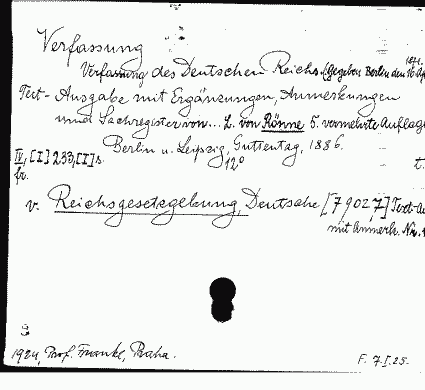 Verfassung
1871.
Verfassung des Deutschen Reichs. (Gegeben Berlin den 16 Ap
Text-Ausgabe mit Ergänzungen, Anmerkungen
und Sachregister von... L. von Rönne 5. vermehrte Auflage
Berlin u. Leipzig, Guttentag, 1886.
IV, [I] 233, [I] s. 12°
fr. t.
v. Reichsgesetzgebung, Deutsche [79027] Text-A
mit Anmerk. Nr.
1924, Prof. Franke, Praha.
F. 7.I.25.